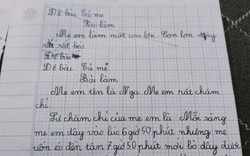 Đề bài Tả mẹ
Bài làm
Mẹ em làm một con lợn. Con lợn này
rất rất béo
Đề bài
Đề bài Tả mẹ
Bài làm
Mẹ em tên là Nga Mẹ em rất chăm
chỉ
Sự chăm chỉ của mẹ em là Mỗi sáng
mẹ em dậy vào lúc 6 giờ 50 phút nhưng mẹ
uốn éo đến tân 7 giờ 50 phút mới bò dậy được